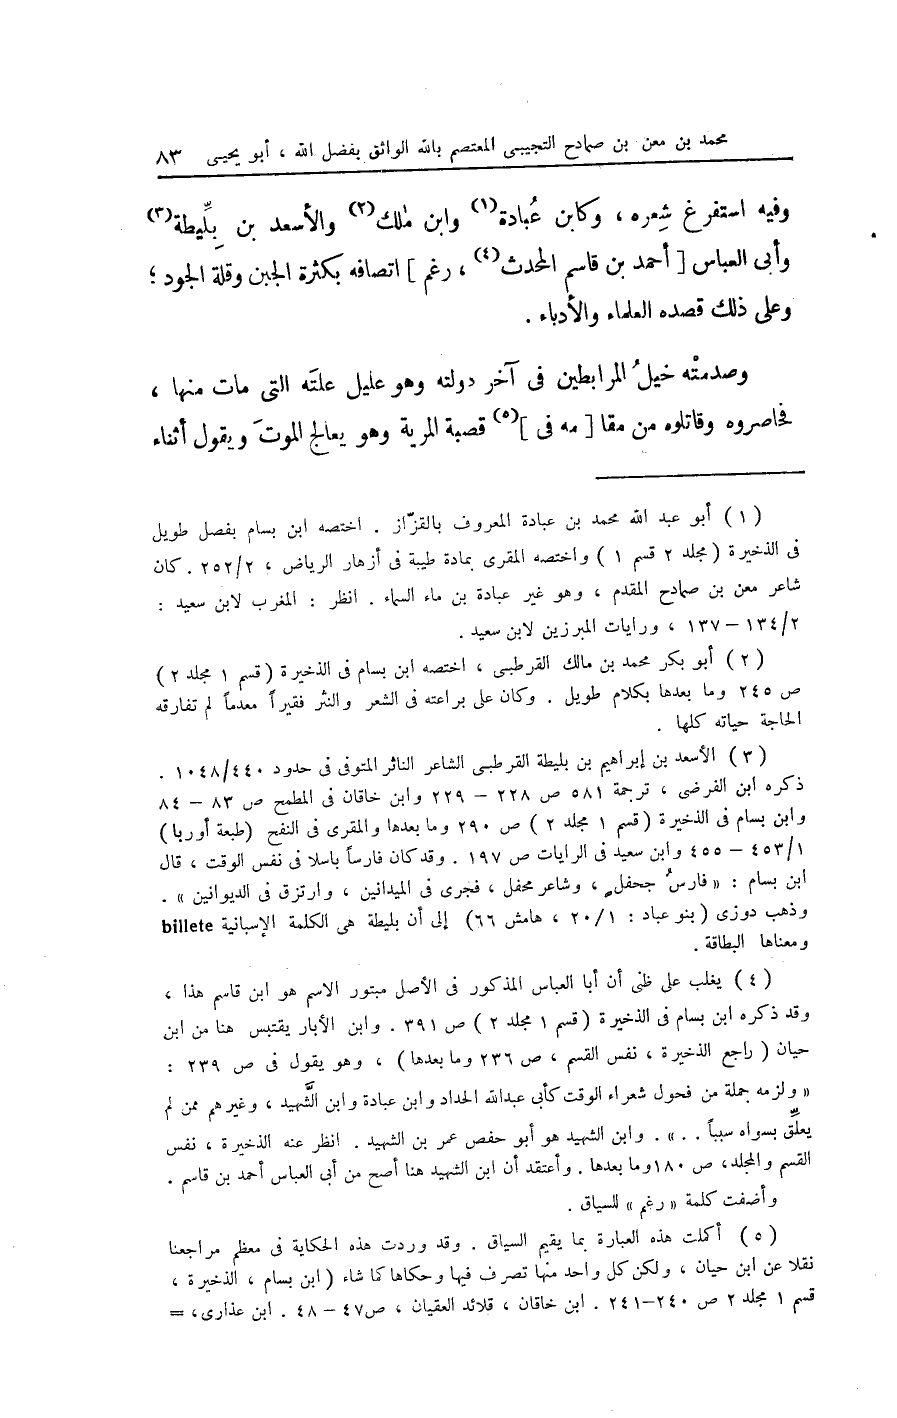 محمد بن معن بن صمادح التجيبى المعتصم بالله الواثق بفضل الله ، أبو يحيى ٨٣
وفيه استفرغ شِعره ، وكابن عُبادة(١) وابن مٰلك(٢) والأسعد بن بِلِّيطة(٣)
وأبى العباس [ أحمد بن قاسم المحدث(٤) ، رغم ] اتصافه بكثرة الجبن وقلة الجود ؛
وعلى ذلك قصده العلماء والأدباء .
وصدمتْه خيلُ المرابطين فى آخر دولته وهو عليل علتَه التى مات منها ،
فحاصروه وقاتلوه من مقا [ مه فى ](٥) قصبة المرية وهو يعالج الموتَ ويقول أثناء
( ١ ) أبو عبد الله محمد بن عبادة المعروف بالقزّاز . اختصه ابن بسام بفصل طويل
فى الذخيرة ( مجلد ٢ قسم ١ ) واختصه المقرى بمادة طيبة فى أزهار الرياض ، ٢/٢٥٢ . كان
شاعر معن بن صمادح المقدم ، وهو غير عبادة بن ماء السماء . انظر : المغرب لابن سعيد :
٢/١٣٤ – ١٣٧ ، ورايات المبرزين لابن سعيد .
( ٢ ) أبو بكر محمد بن مالك القرطبى ، اختصه ابن بسام فى الذخيرة ( قسم ١ مجلد ٢ )
ص ٢٤٥ وما بعدها بكلام طويل . وكان على براعته فى الشعر والنثر فقيراً معدماً لم تفارقه
الحاجة حياته كلها .
( ٣ ) الأسعد بن إبراهيم بن بليطة القرطبى الشاعر الناثر المتوفى فى حدود ٤٤٠/١٠٤٨ .
ذكره ابن الفرضى ، ترجمة ٥٨١ ص ٢٢٨ – ٢٢٩ وابن خاقان فى المطمح ص ٨٣ – ٨٤
وابن بسام فى الذخيرة ( قسم ١ مجلد ٢ ) ص ٢٩٠ وما بعدها والمقرى فى النفح ( طبعة أوربا )
١/٤٥٣ – ٤٥٥ وابن سعيد فى الرايات ص ١٩٧ . وقد كان فارساً باسلا فى نفس الوقت ، قال
ابن بسام : « فارسُ جحفلٍ ، وشاعر محفل ، فجرى فى الميدانين ، وارتزق فى الديوانين » .
وذهب دوزى ( بنو عباد : ١/٢٠ ، هامش ٦٦ ) إلى أن بليطة هى الكلمة الإسبانية billete
ومعناها البطاقة .
( ٤ ) يغلب على ظنى أن أبا العباس المذكور فى الأصل مبتور الاسم هو ابن قاسم هذا ،
وقد ذكره ابن بسام فى الذخيرة ( قسم ١ مجلد ٢ ) ص ٣٩١ . وابن الأبار يقتبس هنا من ابن
حيان ( راجع الذخيرة ، نفس القسم ، ص ٢٣٦ وما بعدها ) ، وهو يقول فى ص ٢٣٩ :
« ولزمه جملة من فحول شعراء الوقت كأبى عبدالله الحداد وابن عبادة وابن الشَّهيد ، وغيرهم ممن لم
يعلِّق بسواه سبباً . . » . وابن الشهيد هو أبو حفص عمر بن الشهيد . انظر عنه الذخيرة ، نفس
القسم والمجلد، ص ١٨٠ وما بعدها . وأعتقد أن ابن الشهيد هنا أصح من أبى العباس أحمد بن قاسم .
وأضفت كلمة « رغم » للسياق .
( ٥ ) أكلت هذه العبارة بما يقيم السياق . وقد وردت هذه الحكاية فى معظم مراجعنا
نقلا عن ابن حيان ، ولكن كل واحد منها تصرف فيها وحكاها كما شاء ( ابن بسام ، الذخيرة ،
قسم ١ مجلد ٢ ص ٢٤٠–٢٤١ . ابن خاقان ، قلائد العقيان ، ص٤٧ – ٤٨ . ابن عذارى، =